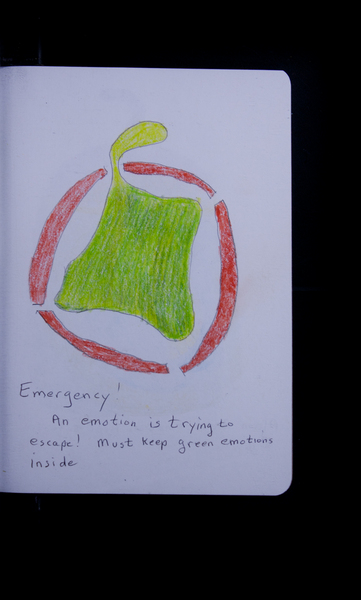 Emergency!
An emotion is trying to
escape! Must keep green emotions
inside